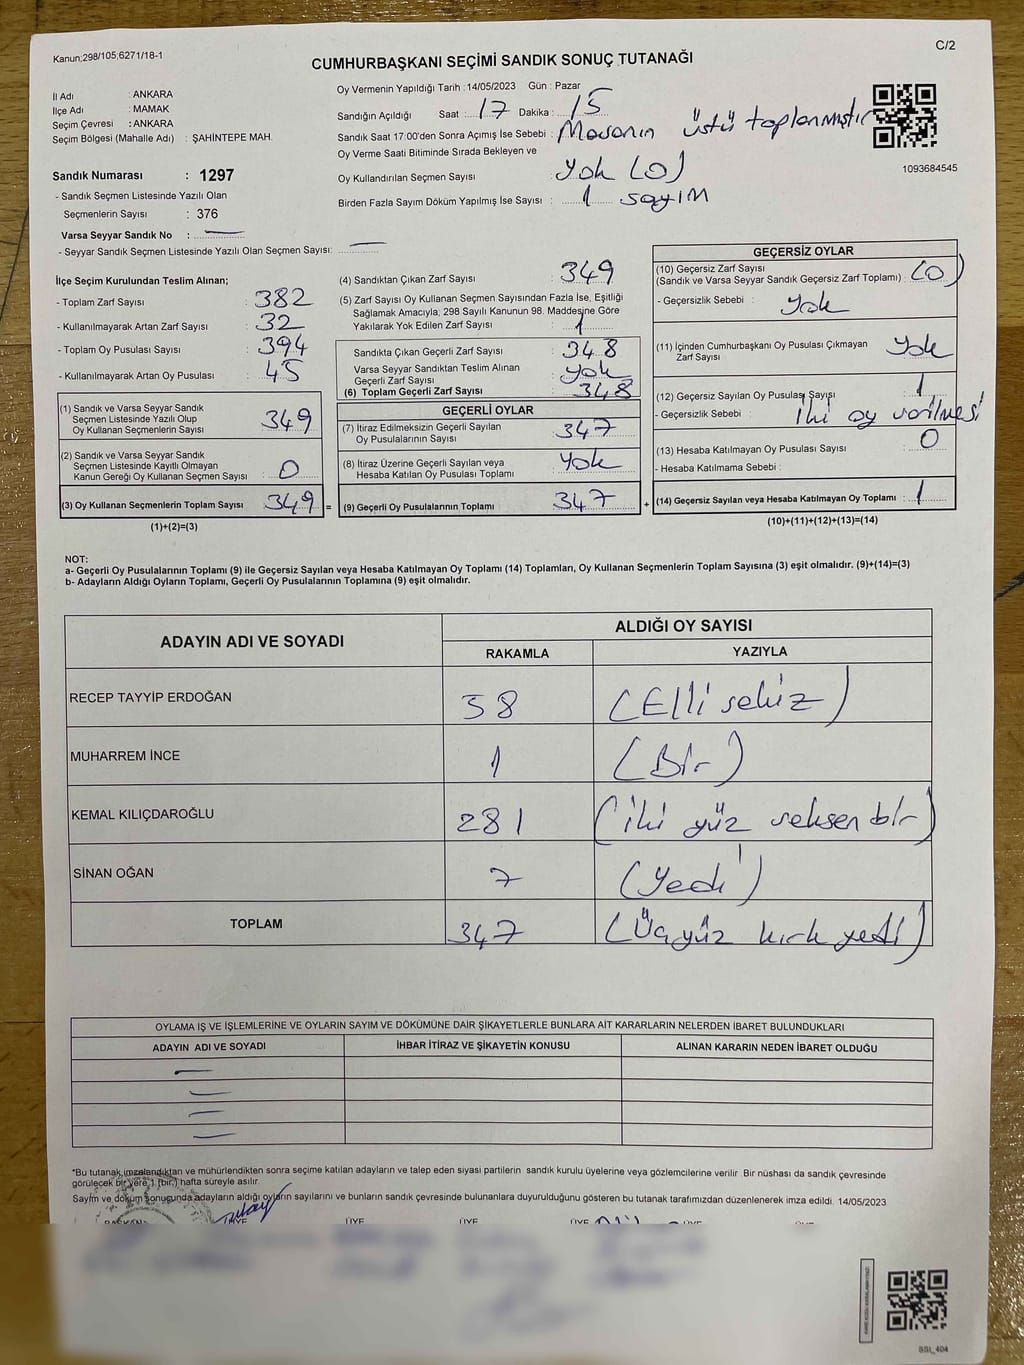 Kanun;298/105;6271/18-1
C/2
CUMHURBAŞKANI SEÇİMİ SANDIK SONUÇ TUTANAĞI
İl Adı : ANKARA
İlçe Adı : MAMAK
Seçim Çevresi : ANKARA
Seçim Bölgesi (Mahalle Adı) : ŞAHİNTEPE MAH.
Sandık Numarası : 1297
- Sandık Seçmen Listesinde Yazılı Olan
Seçmenlerin Sayısı : 376
Varsa Seyyar Sandık No : —
- Seyyar Sandık Seçmen Listesinde Yazılı Olan Seçmen Sayısı: —
Oy Vermenin Yapıldığı Tarih : 14/05/2023 Gün : Pazar
Sandığın Açıldığı Saat : 17 Dakika : 15
Sandık Saat 17:00'den Sonra Açımış İse Sebebi : Masanın üstü toplanmıştır
Oy Verme Saati Bitiminde Sırada Bekleyen ve
Oy Kullandırılan Seçmen Sayısı : Yok (0)
Birden Fazla Sayım Döküm Yapılmış İse Sayısı : 1 sayım
1093684545
İlçe Seçim Kurulundan Teslim Alınan;
- Toplam Zarf Sayısı : 382
- Kullanılmayarak Artan Zarf Sayısı : 32
- Toplam Oy Pusulası Sayısı : 394
- Kullanılmayarak Artan Oy Pusulası : 45
(1) Sandık ve Varsa Seyyar Sandık
Seçmen Listesinde Yazılı Olup
Oy Kullanan Seçmenlerin Sayısı : 349
(2) Sandık ve Varsa Seyyar Sandık
Seçmen Listesinde Kayıtlı Olmayan
Kanun Gereği Oy Kullanan Seçmen Sayısı : 0
(3) Oy Kullanan Seçmenlerin Toplam Sayısı : 349 =
(1)+(2)=(3)
(4) Sandıktan Çıkan Zarf Sayısı : 349
(5) Zarf Sayısı Oy Kullanan Seçmen Sayısından Fazla İse, Eşitliği
Sağlamak Amacıyla; 298 Sayılı Kanunun 98. Maddesine Göre
Yakılarak Yok Edilen Zarf Sayısı : 1
Sandıkta Çıkan Geçerli Zarf Sayısı : 348
Varsa Seyyar Sandıktan Teslim Alınan
Geçerli Zarf Sayısı : Yok
(6) Toplam Geçerli Zarf Sayısı : 348
GEÇERLİ OYLAR
(7) İtiraz Edilmeksizin Geçerli Sayılan
Oy Pusulalarının Sayısı : 347
(8) İtiraz Üzerine Geçerli Sayılan veya
Hesaba Katılan Oy Pusulası Toplamı : Yok
(9) Geçerli Oy Pusulalarının Toplamı : 347 +
GEÇERSİZ OYLAR
(10) Geçersiz Zarf Sayısı
(Sandık ve Varsa Seyyar Sandık Geçersiz Zarf Toplamı) : (0)
- Geçersizlik Sebebi : Yok
(11) İçinden Cumhurbaşkanı Oy Pusulası Çıkmayan
Zarf Sayısı : Yok
(12) Geçersiz Sayılan Oy Pusulası Sayısı : 1
- Geçersizlik Sebebi : İki oy verilmesi
(13) Hesaba Katılmayan Oy Pusulası Sayısı : 0
- Hesaba Katılmama Sebebi :
(14) Geçersiz Sayılan veya Hesaba Katılmayan Oy Toplamı : 1
(10)+(11)+(12)+(13)=(14)
NOT:
a- Geçerli Oy Pusulalarının Toplamı (9) ile Geçersiz Sayılan veya Hesaba Katılmayan Oy Toplamı (14) Toplamları, Oy Kullanan Seçmenlerin Toplam Sayısına (3) eşit olmalıdır. (9)+(14)=(3)
b- Adayların Aldığı Oyların Toplamı, Geçerli Oy Pusulalarının Toplamına (9) eşit olmalıdır.
ADAYIN ADI VE SOYADI
ALDIĞI OY SAYISI
RAKAMLA YAZIYLA
RECEP TAYYİP ERDOĞAN 58 (Elli sekiz)
MUHARREM İNCE 1 (Bir)
KEMAL KILIÇDAROĞLU 281 (iki yüz seksen bir)
SİNAN OĞAN 7 (Yedi)
TOPLAM 347 (Üçyüz kırk yedi)
OYLAMA İŞ VE İŞLEMLERİNE VE OYLARIN SAYIM VE DÖKÜMÜNE DAİR ŞİKAYETLERLE BUNLARA AİT KARARLARIN NELERDEN İBARET BULUNDUKLARI
ADAYIN ADI VE SOYADI İHBAR İTİRAZ VE ŞİKAYETİN KONUSU ALINAN KARARIN NEDEN İBARET OLDUĞU
—
—
—
—
*Bu tutanak imzalandıktan ve mühürlendikten sonra seçime katılan adayların ve talep eden siyasi partilerin sandık kurulu üyelerine veya gözlemcilerine verilir. Bir nüshası da sandık çevresinde
görülecek bir yere 1 (bir) hafta süreyle asılır.
Sayım ve döküm sonucunda adayların aldığı oyların sayılarını ve bunların sandık çevresinde bulunanlara duyurulduğunu gösteren bu tutanak tarafımızdan düzenlenerek imza edildi. 14/05/2023
BAŞKAN ÜYE ÜYE ÜYE ÜYE ÜYE
SSI_404